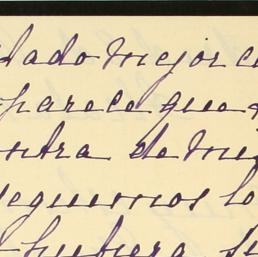 lado mejor c
parece que
ntra de mi
seguimos lo
hubiera su